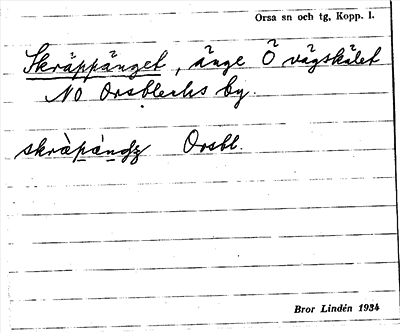 Orsa sn och tg, Kopp. l.
Skräppänget, änge Ö vägskälet
NO Orsblecks by.
skràpàndʒ Orsbl.
Bror Lindén 1934